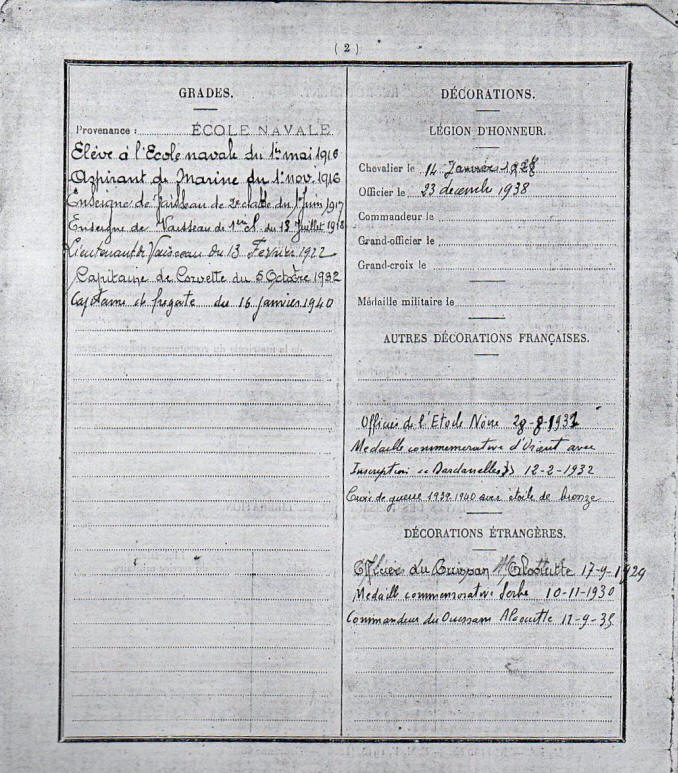 ( 2 )
GRADES.
Provenance : ÉCOLE NAVALE
Elève à l'Ecole navale du 1er mai 1916
Aspirant de Marine du 1er nov. 1916
Enseigne de Vaisseau de 2e classe du 1er Juin 1917
Enseigne de Vaisseau de 1ère cl. du 13 Juillet 1918
Lieutenant de Vaisseau du 13 Fevrier 1922
Capitaine de Corvette du 5 Octobre 1932
Capitaine de fregate du 16 janvier 1940
DÉCORATIONS.
LÉGION D'HONNEUR.
Chevalier le 14 Janvier
Officier le 23 decembre 1938
Commandeur le
Grand-officier le
Grand-croix le
Médaille militaire le
AUTRES DÉCORATIONS FRANÇAISES.
Officier de l'Etoile Noire 28-8-1937
Medaille commemorative d'Orient avec
Inscription « Dardanelles » 12-2-1932
Croix de guerre 1939-1940 avec étoile de bronze
DÉCORATIONS ÉTRANGÈRES.
Officier du Ouissam Alaouitte 17-9-1929
Medaille commemorative Serbe 10-11-1930
Commandeur du Ouissam Alaouitte 11-9-35